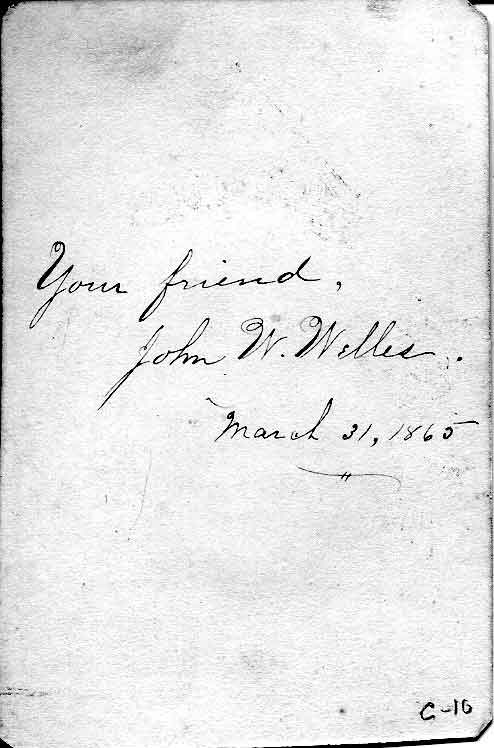 Your friend,
John W. Welles.
March 31, 1865
C-16